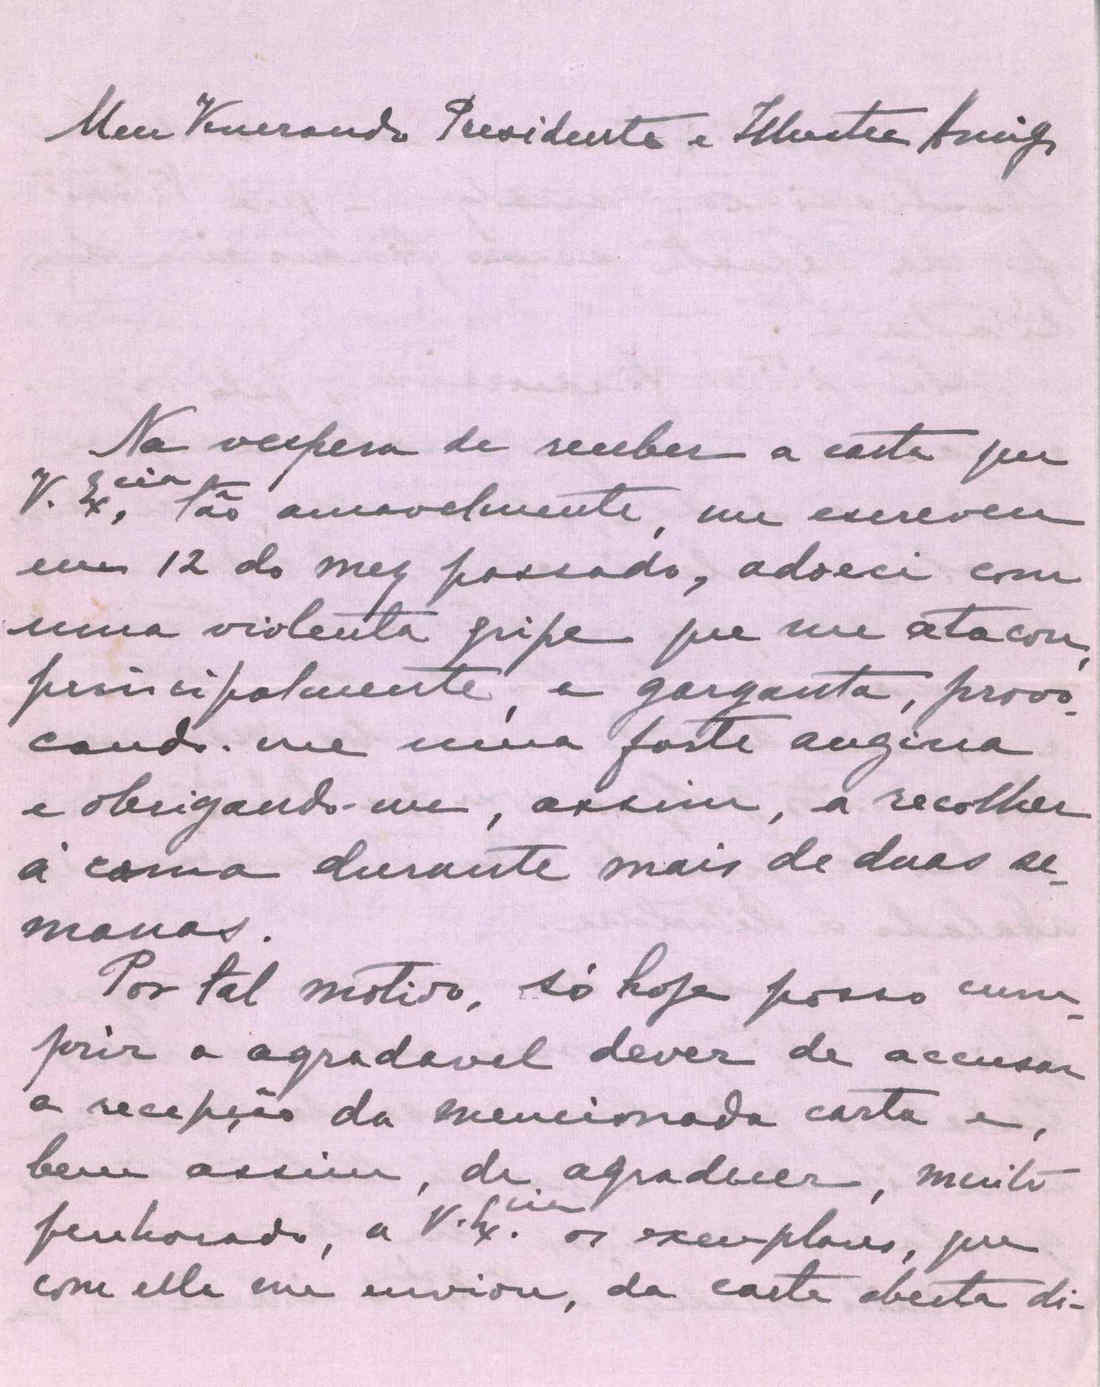 Meu Venerando Presidente e Illustre Amigo
Na vespera de receber a carta que
V. Ex.cia, tão amavelmente, me escreveu
em 12 do mez passado, adoeci com
uma violenta gripe que me atacou,
principalmente, a garganta, provo-
cando-me uma forte angina
e obrigando-me, assim, a recolher
á cama durante mais de duas se-
manas.
Por tal motivo, só hoje posso cum-
prir o agradavel dever de accusar
a recepção da mencionada carta e,
bem assim, de agradecer, muito
penhorado, a V. Ex.cia os exemplares, que
com ella me enviou, da carta aberta di-